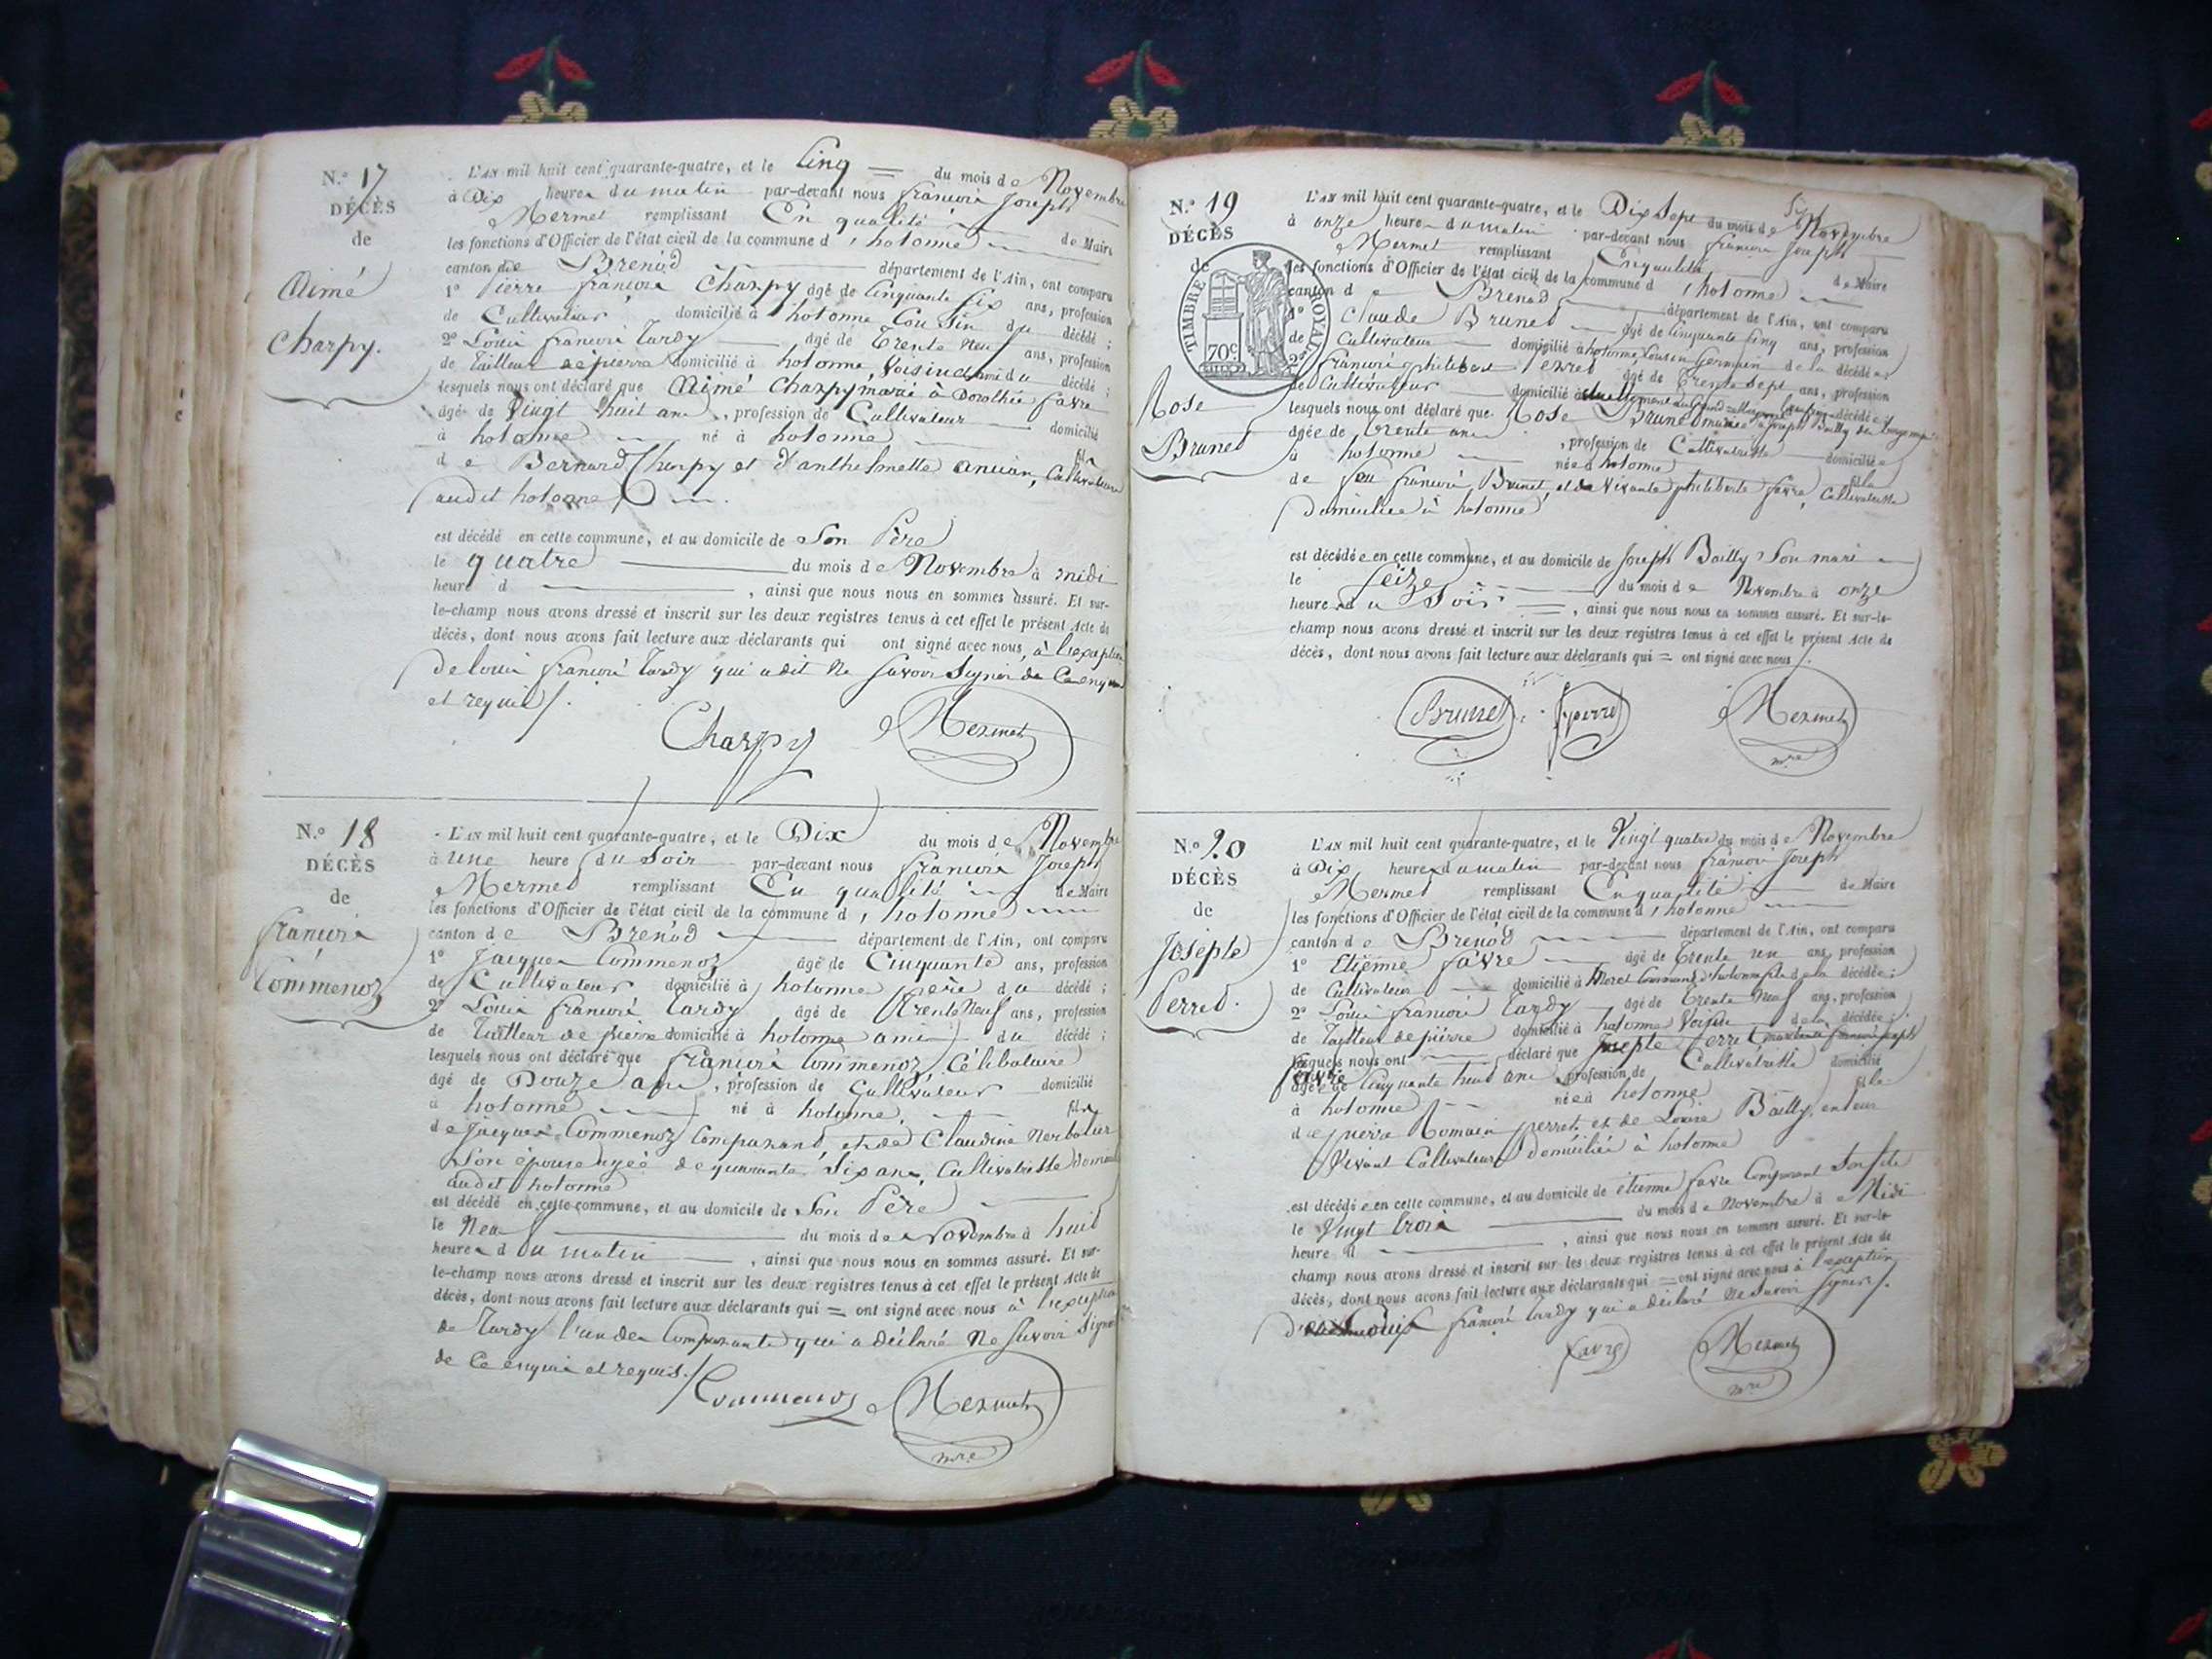 N.° 17
DÉCÈS
de
Aimé
Charpy.
L'AN mil huit cent quarante-quatre, et le Cinq du mois de Novembre
à Dix heures du matin par-devant nous françois Joseph
Mermet remplissant En qualité de Maire
les fonctions d'Officier de l'état civil de la commune d'hotonne
canton de Brenod département de l'Ain, ont comparu
1° Pierre françois Charpy âgé de Cinquante Six ans, profession
de Cultivateur domicilié à hotonne Cousin du décédé ;
2° Louis françois Tardy âgé de Trente Neuf ans, profession
de Tailleur de pierre domicilié à hotonne, Voisin ami du décédé ;
lesquels nous ont déclaré que Aimé Charpy marié à Dorothée favre
âgé de Vingt huit ans, profession de Cultivateur domicilié
à hotonne né à hotonne fils
de Bernard Charpy et d'anthelmette Cultivateurs
audit hotonne
est décédé en cette commune, et au domicile de Son Père
le quatre du mois de Novembre à midi
heure d , ainsi que nous nous en sommes assuré. Et sur-
le-champ nous avons dressé et inscrit sur les deux registres tenus à cet effet le présent Acte de
décès, dont nous avons fait lecture aux déclarants qui ont signé avec nous, à l'exception
de louis françois Tardy qui a dit Ne Savoir Signer de Ce enquis
et requis/.
Charpy Mermet
N.° 18
DÉCÈS
de
françois
Commenoz
L'AN mil huit cent quarante-quatre, et le Dix du mois de Novembre
à Une heure du Soir par-devant nous françois Joseph
Mermet remplissant En qualité de Maire
les fonctions d'Officier de l'état civil de la commune d'hotonne
canton de Brenod département de l'Ain, ont comparu
1° Jacques Commenoz âgé de Cinquante ans, profession
de Cultivateur domicilié à hotonne père du décédé ;
2° Louis françois Tardy âgé de Trente Neuf ans, profession
de Tailleur de pierre domicilié à hotonne ami du décédé ;
lesquels nous ont déclaré que françois Commenoz Célibataire
âgé de Douze ans, profession de Cultivateur domicilié
à hotonne né à hotonne, fils
de Jacques Commenoz Comparant, et de Claudine
Son épouse agée de quarante Six ans, Cultivatrice
audit hotonne
est décédé en cette commune, et au domicile de Son Père
le Neuf du mois de Novembre à huit
heures du matin , ainsi que nous nous en sommes assuré. Et sur-
le-champ nous avons dressé et inscrit sur les deux registres tenus à cet effet le présent Acte de
décès, dont nous avons fait lecture aux déclarants qui = ont signé avec nous à l'exception
de Tardy l'un des Comparants qui a déclaré Ne Savoir Signer
de Ce enquis et requis./
Commenoz Mermet
mre
N.° 19
DÉCÈS
de
TIMBRE ROYAL
70c
Rose
Brunet
L'AN mil huit cent quarante-quatre, et le Dix Sept du mois de Novembre
à onze heures du matin par-devant nous françois Joseph
Mermet remplissant En qualité de Maire
les fonctions d'Officier de l'état civil de la commune d'hotonne
canton de Brenod département de l'Ain, ont comparu
1° Claude Brunet âgé de Cinquante Cinq ans, profession
de Cultivateur domicilié à hotonne, Cousin Germain de la décédée ;
2° françois philibert Perret âgé de Trente Sept ans, profession
de Cultivateur domicilié à décédée ;
lesquels nous ont déclaré que Rose Brunet mariée à Joseph Bailly
âgée de Trente ans, profession de Cultivatrice domiciliée
à hotonne née à hotonne fille
de feu françois Brunet, et de Vivante philiberte favre, Cultivatrice
domiciliée à hotonne
est décédée en cette commune, et au domicile de Joseph Bailly Son mari
le Seize du mois de Novembre à onze
heures du Soir , ainsi que nous nous en sommes assuré. Et sur-le-
champ nous avons dressé et inscrit sur les deux registres tenus à cet effet le présent Acte de
décès, dont nous avons fait lecture aux déclarants qui = ont signé avec nous/.
Brunet perret Mermet
mre
N.° 20
DÉCÈS
de
Josephte
Perret.
L'AN mil huit cent quarante-quatre, et le Vingt quatre du mois de Novembre
à Dix heures du matin par-devant nous françois Joseph
Mermet remplissant En qualité de Maire
les fonctions d'Officier de l'état civil de la commune d'hotonne
canton de Brenod département de l'Ain, ont comparu
1° Etienne favre âgé de Trente un ans, profession
de Cultivateur domicilié à Commune d'hotonne fils de la décédée ;
2° Louis françois Tardy âgé de Trente Neuf ans, profession
de Tailleur de pierre domicilié à hotonne Voisin de la décédée ;
lesquels nous ont déclaré que Josephte Perret
favre
âgée de Cinquante huit ans profession de Cultivatrice domiciliée
à hotonne née à hotonne fille
de pierre Romain perret et de Louise Bailly, en leur
Vivant Cultivateurs domiciliés à hotonne
est décédée en cette commune, et au domicile de étienne favre Comparant Son fils
le Vingt trois du mois de Novembre à Midi
heure d , ainsi que nous nous en sommes assuré. Et sur-le-
champ nous avons dressé et inscrit sur les deux registres tenus à cet effet le présent Acte de
décès, dont nous avons fait lecture aux déclarants qui = ont signé avec nous à l'exception
de Louis françois Tardy qui a déclaré Ne Savoir Signer/.
favre Mermet
mre